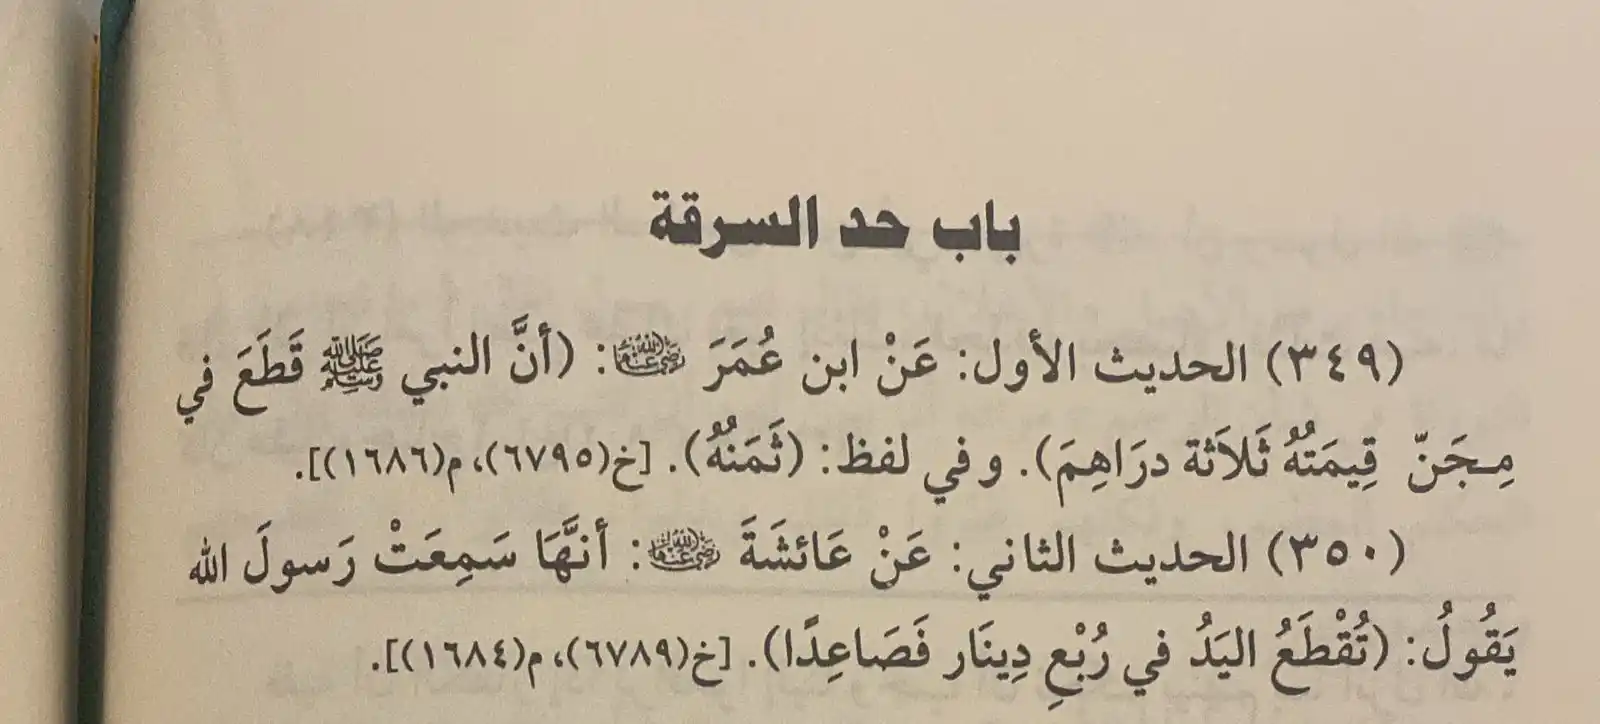 باب حد السرقة
(٣٤٩) الحديث الأول: عَنْ ابن عُمَرَ رضي الله عنهما: (أنَّ النبي ﷺ قَطَعَ في
مِجَنّ قِيمَتُهُ ثَلاَثة درَاهِمَ). وفي لفظ: (ثَمَنُهُ). [خ(٦٧٩٥)، م(١٦٨٦)].
(٣٥٠) الحديث الثاني: عَنْ عَائشَةَ رضي الله عنها: أنهَّا سَمِعَتْ رَسولَ الله
يَقُولُ: (تُقْطَعُ اليَدُ في رُبْعِ دِينَار فَصَاعِدًا). [خ(٦٧٨٩)، م(١٦٨٤)].